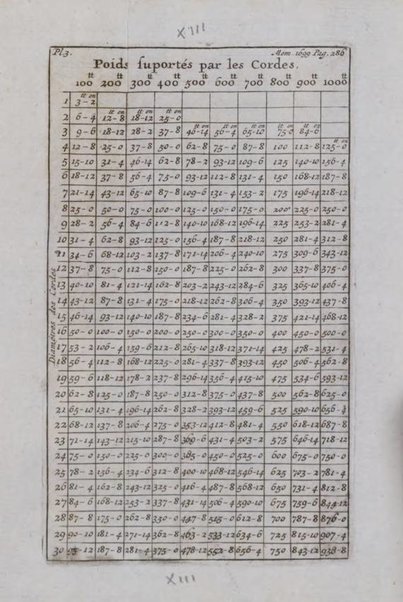 XIII
Pl. 3. Mem. 1699 Pag. 286
Poids suportés par les Cordes.
tt tt tt tt tt tt tt tt tt tt
100 200 300 400 500 600 700 800. 900 1000
Diametres des Cordes
tt on
1 3-2
tt on tt on tt on
2 6-4 12-8 18-12 25-0
tt on tt on tt on tt tt on
3 9-6 18-12 28-2 37-8 46-14 56-4 65-10 75-0 84-6
tt on
4 12-8 25-0 37-8 50-0 62-8 75-0 87-8 100 112-8 125-0
5 15-10 31-4 46-14 62-8 78-2 93-12 109-6 125 140-10 156-4
6 18-12 37-8 56-4 75-0 93-12 112-8 131-4 150 168-12 187-8
7 21-14 43-12 65-10 87-8 109-6 131-4 153-2 175 196-14 218-12
8 25-0 50-0 75-0 100-0 125-0 150-0 175-0 200 225-0 250-0
9 28-2 56-4 84-6 112-8 140-10 168-12 196-14 225 253-2 281-4
10 31-4 62-8 93-12 125-0 156-4 187-8 218-12 250 281-4 312-8
11 34-6 68-12 103-2 137-8 171-14 206-4 240-10 275 309-6 343-12
12 37-8 75-0 112-8 150-0 187-8 225-0 262-8 300 337-8 375-0
13 40-10 81-4 121-14 162-8 203-2 243-12 284-6 325 365-10 406-4
14 43-12 87-8 131-4 175-0 218-12 262-8 306-4 350 393-12 437-8
15 46-14 93-12 140-10 187-8 234-6 281-4 328-2 375 421-14 468-12
16 50-0 100-0 150-0 200-0 250-0 300-0 350-0 400 450-0 500-0
17 53-2 106-4 159-6 212-8 265-10 318-12 371-14 425 478-2 531-4
18 56-4 112-8 168-12 225-0 281-4 337-8 393-12 450 506-4 562-8
19 59-6 118-12 178-2 237-8 296-14 356-4 415-10 475 534-6 593-12
20 62-8 125-0 187-8 250-0 312-8 375-0 437-8 500 562-8 625-0
21 65-10 131-4 196-14 262-8 328-2 393-12 459-6 525 590-10 656-4
22 68-12 137-8 206-4 275-0 353-12 412-8 481-4 550 618-12 687-8
23 71-14 143-12 215-10 287-8 369-6 431-4 503-2 575 646-14 718-12
24 75-0 150-0 225-0 300-0 365-0 450-0 525-0 600 675-0 750-0
25 78-2 156-4 234-6 312-8 400-10 468-12 546-14 625 703-2 781-4
26 81-4 162-8 243-12 325-0 416-4 487-8 568-12 650 731-4 812-8
27 84-6 168-12 253-2 337-8 431-14 506-4 590-10 675 759-6 844-12
28 87-8 175-0 262-8 350-0 447-8 525-0 612-8 700 787-8 876-0
29 90-10 181-4 271-14 362-8 463-2 533-12 634-6 725 815-10 907-4
30 93-12 187-8 281-4 375-0 478-12 552-8 656-4 750 843-12 938-8
XIII